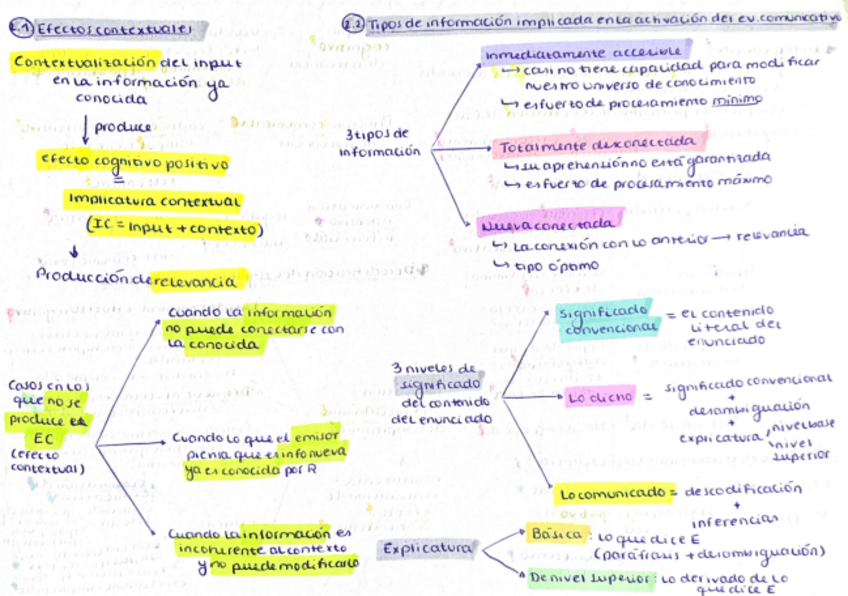 2.1 Efectos contextuales
Contextualización del input
en la información ya
conocida
produce
efecto cognitivo positivo
=
Implicatura contextual
(IC = Input + contexto)
Producción de relevancia
Casos en los
que no se
produce el
EC
(efecto
contextual)
Cuando la información
no puede conectarse con
la conocida
Cuando lo que el emisor
piensa que es info nueva
ya es conocida por R
Cuando la información es
incoherente al contexto
y no puede modificarlo
2.2 Tipos de información implicada en la activación del ev. comunicativo
3 tipos de
información
Inmediatamente accesible
↳ casi no tiene capacidad para modificar
nuestro universo de conocimiento
↳ esfuerzo de procesamiento mínimo
Totalmente desconectada
↳ su aprehensión no está garantizada
↳ esfuerzo de procesamiento máximo
Nueva conectada
↳ La conexión con lo anterior → relevancia
↳ tipo óptimo
3 niveles de
significado
del contenido
del enunciado
Significado
convencional
= el contenido
literal del
enunciado
Lo dicho = significado convencional
+
desambiguación
+
explicatura, nivel base
nivel
superior
Lo comunicado = descodificación
+
inferencias
Explicatura
Básica: lo que dice E
(paráfrasis + desambiguación)
De nivel superior: lo derivado de lo
que dice E